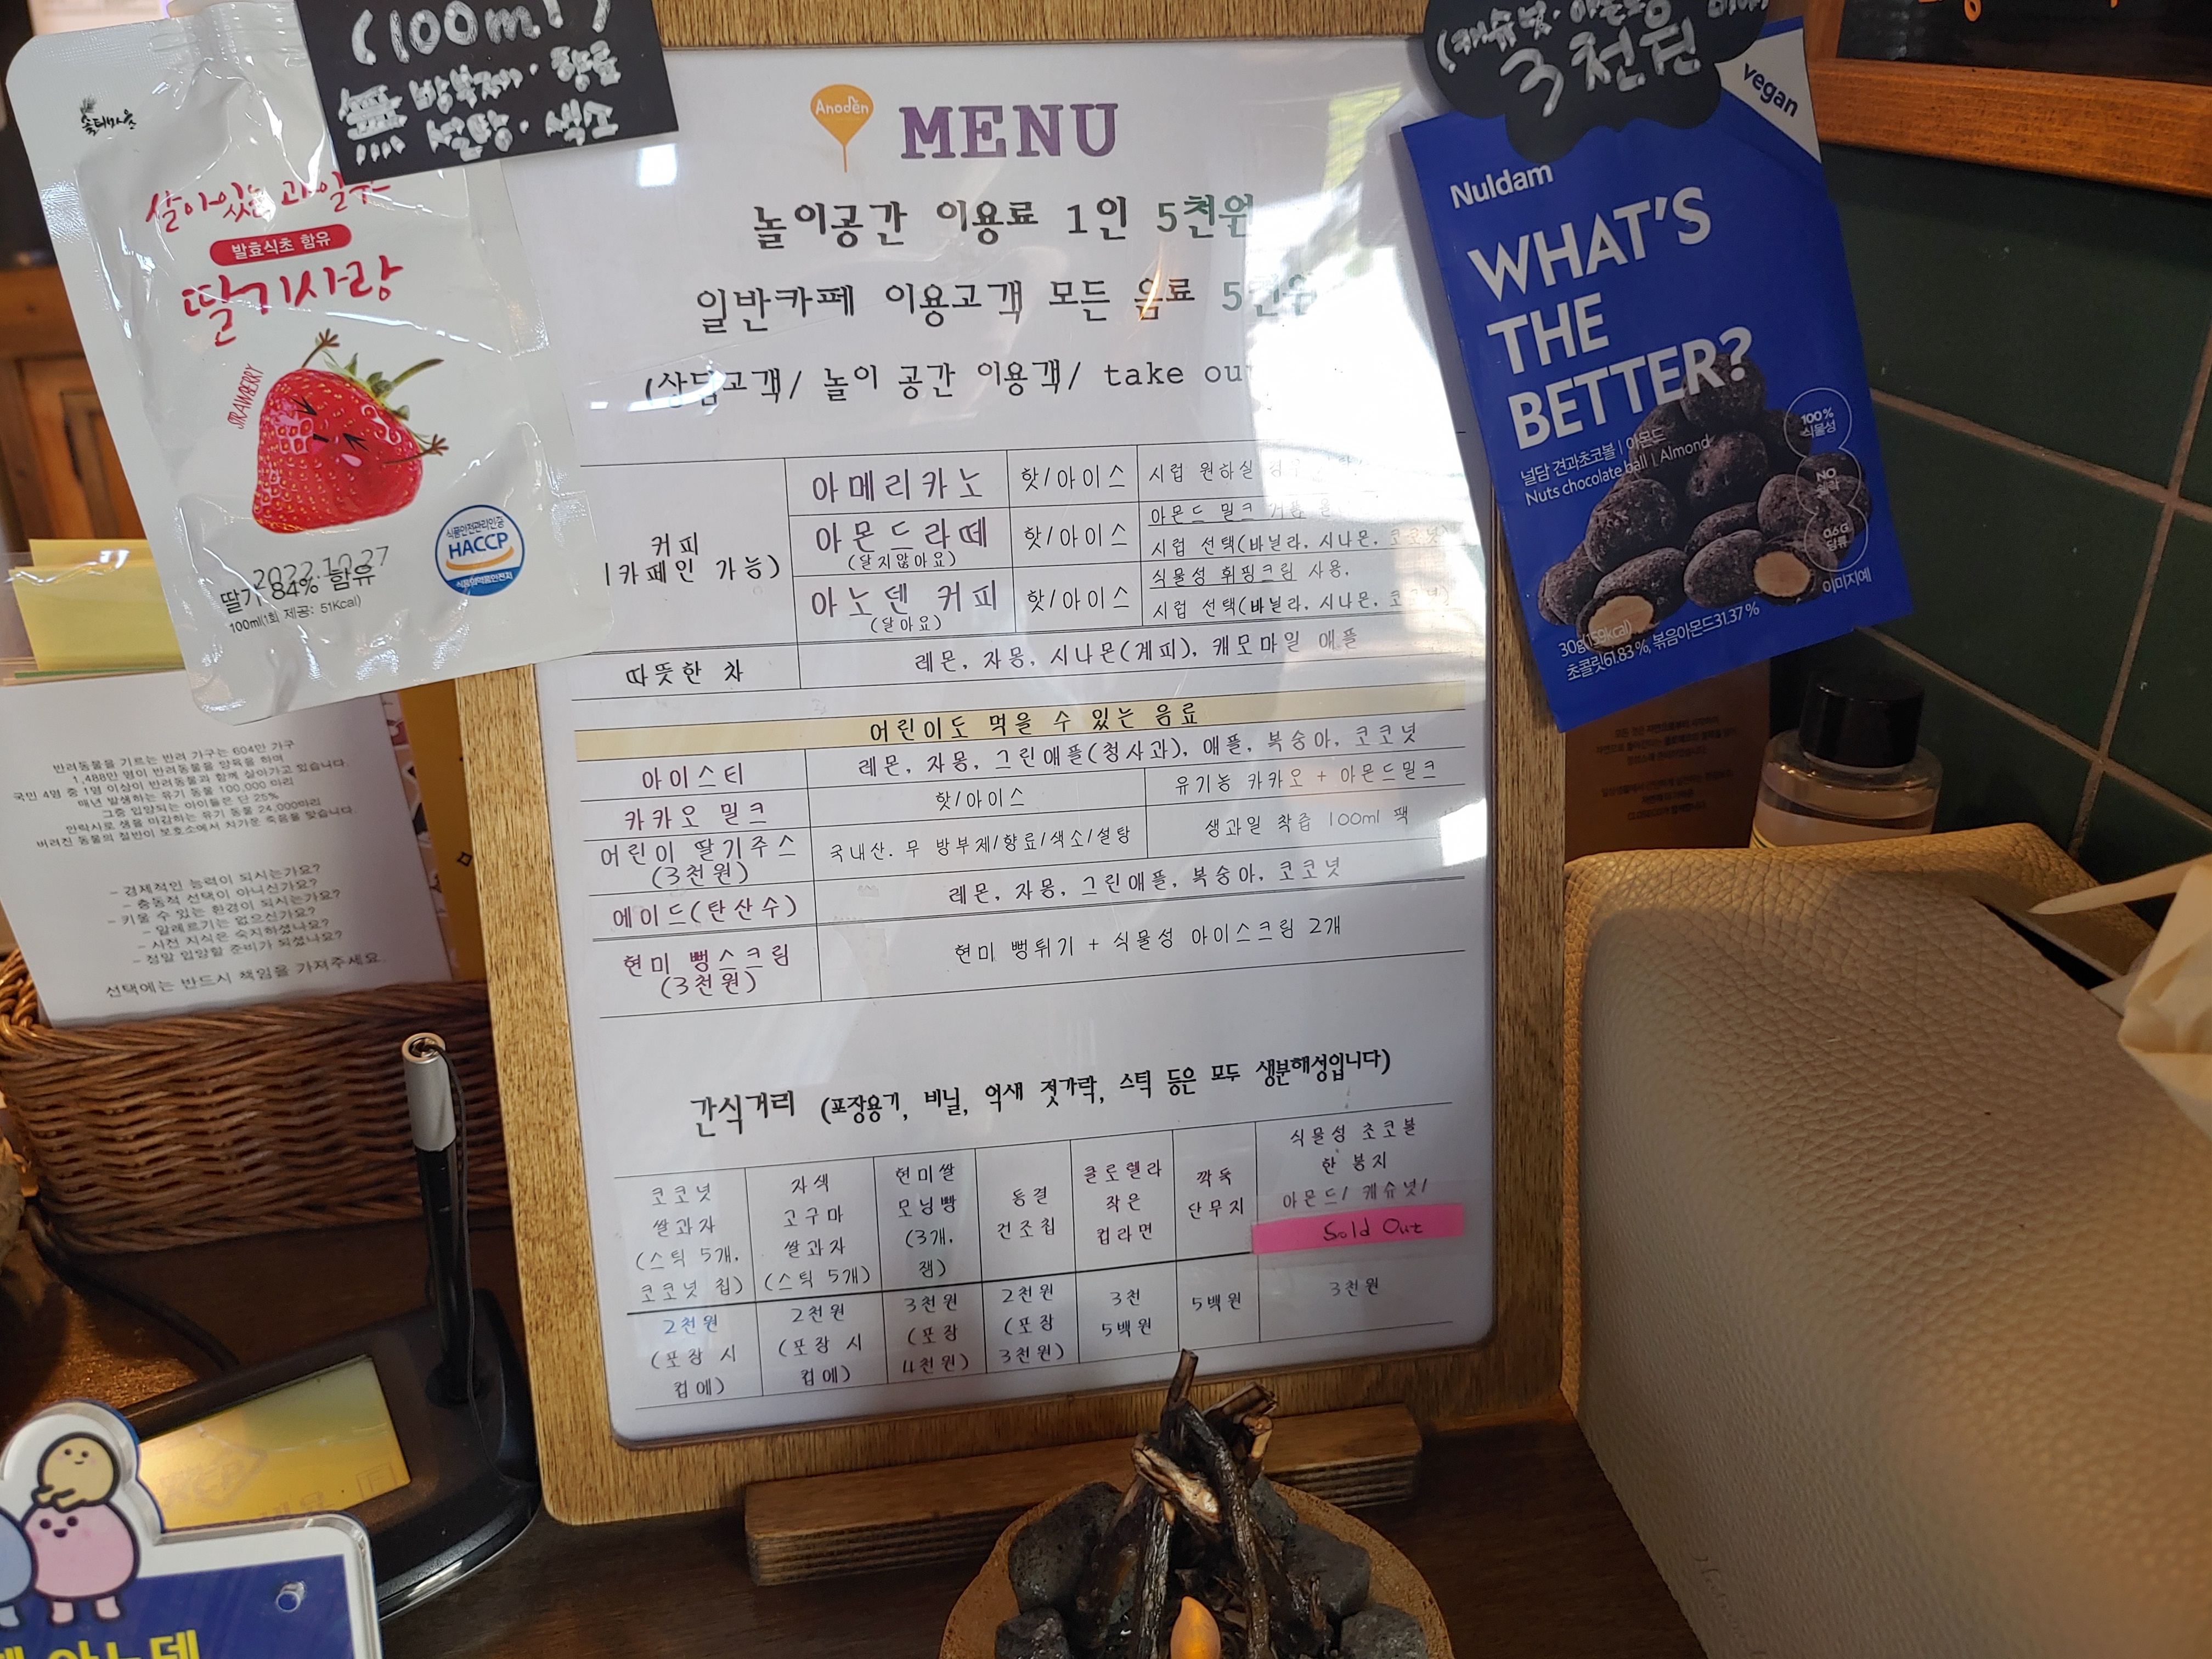 (100ml)
無 방부제·향료
설탕·색소
살아있는 과일주
발효식초 함유
딸기사랑
STRAWBERRY
식품안전관리인증
HACCP
식품의약품안전처
2022.10.27
딸기 84% 함유
100ml(1회 제공: 51Kcal)
Anoden
MENU
놀이공간 이용료 1인 5천원
일반카페 이용고객 모든 음료 5천원
(상담고객/ 놀이 공간 이용객/ take ou
커피
(카페인 가능)
아메리카노
핫/아이스
시럽 원하실
아몬드라떼
(달지않아요)
핫/아이스
아몬드 밀크
시럽 선택(바닐라, 시나몬, 코코넛)
아노덴 커피
(달아요)
핫/아이스
식물성 휘핑크림 사용.
시럽 선택(바닐라, 시나몬, 코코넛)
따뜻한 차
레몬, 자몽, 시나몬(계피), 캐모마일 애플
어린이도 먹을 수 있는 음료
아이스티
레몬, 자몽, 그린애플(청사과), 애플, 복숭아, 코코넛
카카오 밀크
핫/아이스
유기농 카카오 + 아몬드밀크
어린이 딸기주스
(3천원)
국내산. 무 방부제/향료/색소/설탕
생과일 착즙 100ml 팩
에이드(탄산수)
레몬, 자몽, 그린애플, 복숭아, 코코넛
현미 뻥스크림
(3천원)
현미 뻥튀기 + 식물성 아이스크림 2개
간식거리 (포장용기, 비닐, 억새 젓가락, 스틱 등은 모두 생분해성입니다)
코코넛
쌀과자
(스틱 5개,
코코넛 칩)
자색
고구마
쌀과자
(스틱 5개)
현미쌀
모닝빵
(3개,
잼)
동결
건조칩
클로렐라
작은
컵라면
깍둑
단무지
식물성 초코볼
한 봉지
아몬드/ 캐슈넛/
Sold Out
2천원
(포장 시
컵에)
2천원
(포장 시
컵에)
3천원
(포장
4천원)
2천원
(포장
3천원)
3천
5백원
5백원
3천원
3천원
vegan
Nuldam
WHAT'S
THE
BETTER?
널담 견과초코볼 | 아몬드
Nuts chocolate ball | Almond
100%
식물성
NO
0.6G
당류
이미지예
30g(159kcal)
초콜릿61.83%, 볶음아몬드31.37%
반려동물을 기르는 반려 가구는 604만 가구
1,488만 명이 반려동물을 양육을 하며
국민 4명 중 1명 이상이 반려동물과 함께 살아가고 있습니다.
매년 발생하는 유기 동물 100,000 마리
그중 입양되는 아이들은 단 25%
안락사로 생을 마감하는 유기 동물 24,000마리
버려진 동물의 절반이 보호소에서 차가운 죽음을 맞습니다.
- 경제적인 능력이 되시는가요?
- 충동적 선택이 아니신가요?
- 키울 수 있는 환경이 되시는가요?
- 알레르기는 없으신가요?
- 사전 지식은 숙지하셨나요?
- 정말 입양할 준비가 되셨나요?
선택에는 반드시 책임을 가져주세요.